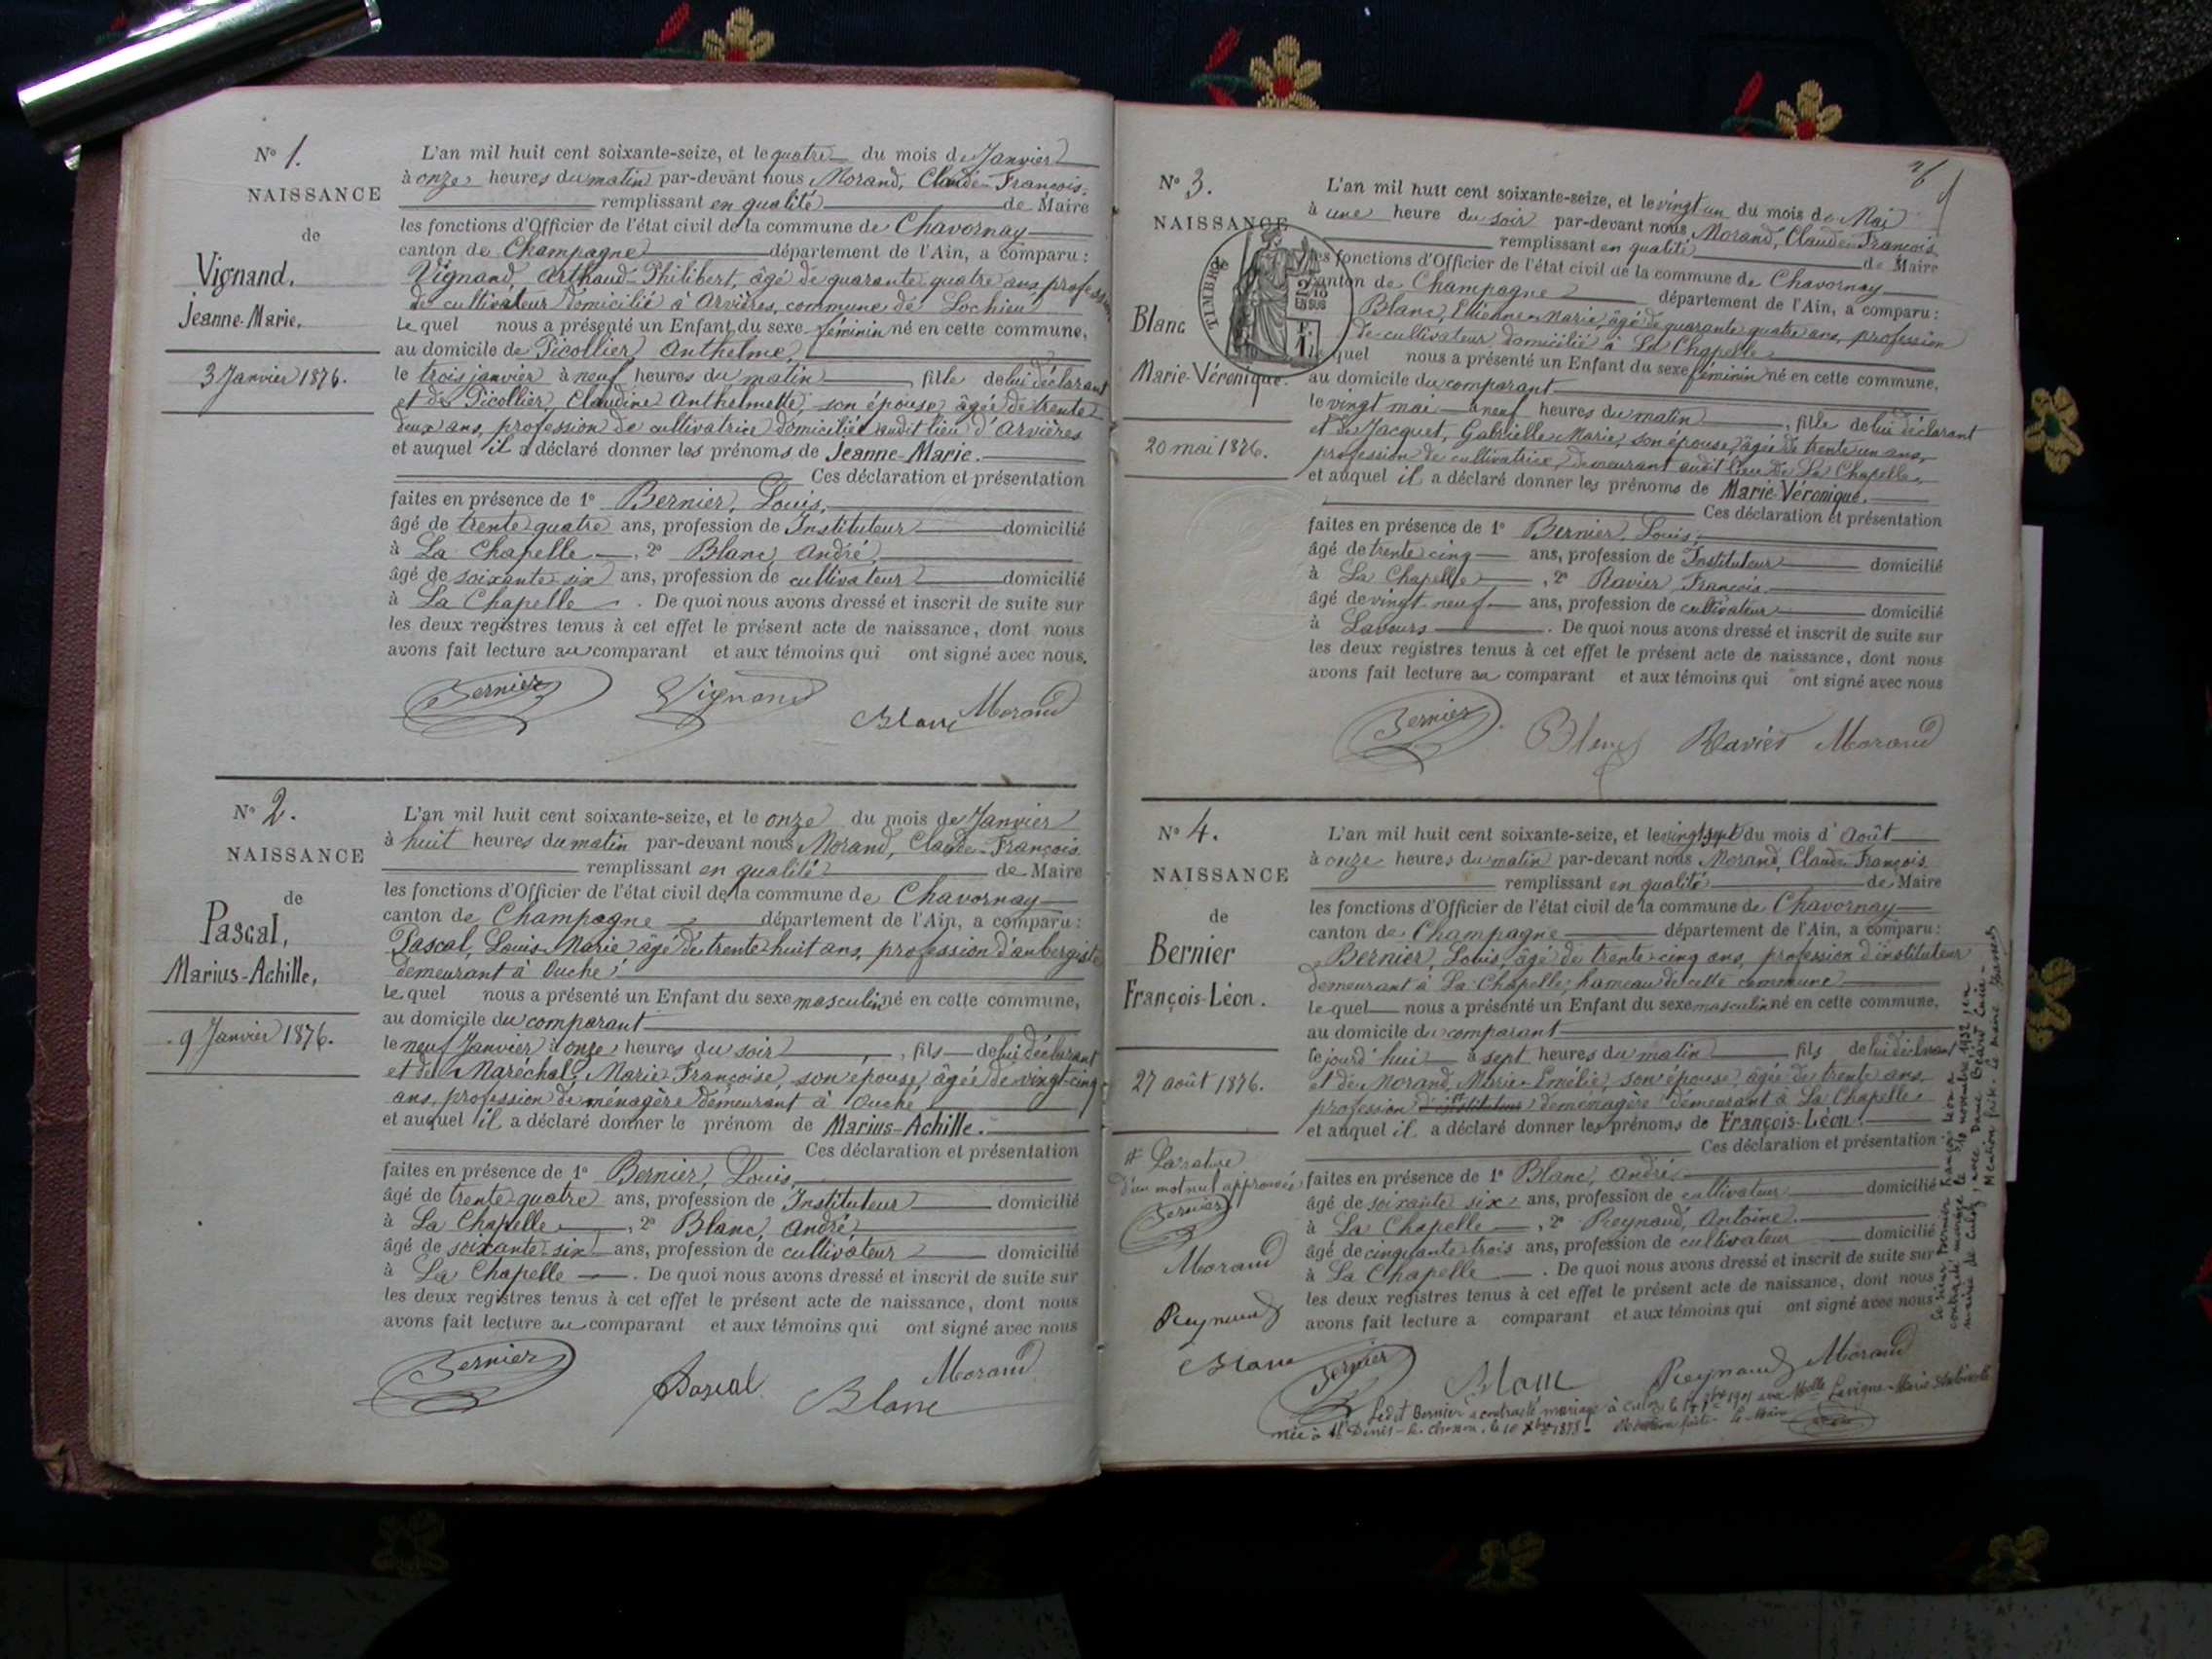 N° 1.
NAISSANCE
de
Vignand,
Jeanne-Marie.
3 Janvier 1876.
L'an mil huit cent soixante-seize, et le quatre du mois de Janvier
à onze heures du matin par-devant nous Morand, Claude-François.
remplissant en qualité de Maire
les fonctions d'Officier de l'état civil de la commune de Chavornay
canton de Champagne département de l'Ain, a comparu :
Vignand, Arthaud-Philibert, âgé de quarante quatre ans profession
de cultivateur domicilié à Arvières, commune de Lochieu
Le quel nous a présenté un Enfant du sexe féminin né en cette commune,
au domicile de Picollier Anthelme,
le trois janvier à neuf heures du matin, fille de lui déclarant
et de Picollier, Claudine Anthelmette, son épouse, âgée de trente
deux ans, profession de cultivatrice domiciliée audit lieu d'Arvières
et auquel il a déclaré donner les prénoms de Jeanne-Marie.
Ces déclaration et présentation
faites en présence de 1° Bernier, Louis,
âgé de trente quatre ans, profession de Instituteur domicilié
à La Chapelle, 2° Blanc, André,
âgé de soixante six ans, profession de cultivateur domicilié
à La Chapelle. De quoi nous avons dressé et inscrit de suite sur
les deux registres tenus à cet effet le présent acte de naissance, dont nous
avons fait lecture au comparant et aux témoins qui ont signé avec nous.
Bernier Vignand Blanc Morand
N° 2.
NAISSANCE
de
Pascal,
Marius-Achille,
9 Janvier 1876.
L'an mil huit cent soixante-seize, et le onze du mois de Janvier
à huit heures du matin par-devant nous Morand, Claude-François
remplissant en qualité de Maire
les fonctions d'Officier de l'état civil de la commune de Chavornay
canton de Champagne département de l'Ain, a comparu :
Pascal, Louis-Marie âgé de trente-huit ans, profession d'aubergiste
demeurant à Ouche,
Le quel nous a présenté un Enfant du sexe masculin né en cette commune,
au domicile du comparant
le neuf Janvier à onze heures du soir, fils de lui déclarant
et de Maréchal, Marie Françoise, son épouse, âgée de vingt-cinq
ans, profession de ménagère demeurant à Ouche
et auquel il a déclaré donner le prénom de Marius-Achille.
Ces déclaration et présentation
faites en présence de 1° Bernier, Louis,
âgé de trente quatre ans, profession de Instituteur domicilié
à La Chapelle, 2° Blanc, André,
âgé de soixante-six ans, profession de cultivateur domicilié
à La Chapelle. De quoi nous avons dressé et inscrit de suite sur
les deux registres tenus à cet effet le présent acte de naissance, dont nous
avons fait lecture au comparant et aux témoins qui ont signé avec nous
Bernier Pascal Blanc Morand
N° 3.
NAISSANCE
Blanc
Marie-Véronique.
20 mai 1876.
TIMBRE
2/10
EN SUS
L'an mil huit cent soixante-seize, et le vingt un du mois de Mai
à une heure du soir par-devant nous Morand, Claude-François
remplissant en qualité de Maire
les fonctions d'Officier de l'état civil de la commune de Chavornay
canton de Champagne département de l'Ain, a comparu :
Blanc, Etienne-Marie, âgé de quarante quatre ans, profession
de cultivateur domicilié à La Chapelle
Le quel nous a présenté un Enfant du sexe féminin né en cette commune,
au domicile du comparant
le vingt mai à neuf heures du matin, fille de lui déclarant
et de Jacquet, Gabrielle-Marie, son épouse, âgée de trente un ans,
profession de cultivatrice, demeurant audit lieu de La Chapelle,
et auquel il a déclaré donner les prénoms de Marie-Véronique.
Ces déclaration et présentation
faites en présence de 1° Bernier, Louis,
âgé de trente cinq ans, profession de Instituteur domicilié
à La Chapelle, 2° Ravier, François
âgé de vingt neuf ans, profession de cultivateur domicilié
à Lavours. De quoi nous avons dressé et inscrit de suite sur
les deux registres tenus à cet effet le présent acte de naissance, dont nous
avons fait lecture au comparant et aux témoins qui ont signé avec nous
Bernier Blanc Ravier Morand
N° 4.
NAISSANCE
de
Bernier
François-Léon.
27 août 1876.
L'an mil huit cent soixante-seize, et le vingt sept du mois d'Août
à onze heures du matin par-devant nous Morand, Claude-François
remplissant en qualité de Maire
les fonctions d'Officier de l'état civil de la commune de Chavornay
canton de Champagne département de l'Ain, a comparu :
Bernier, Louis, âgé de trente-cinq ans, profession d'instituteur
demeurant à La Chapelle, hameau de cette commune
Le quel nous a présenté un Enfant du sexe masculin né en cette commune,
au domicile du comparant
le jourd'hui à sept heures du matin fils de lui déclarant
et de Morand, Marie-Emélie, son épouse, âgée de trente ans,
profession d'instituteur de ménagère demeurant à La Chapelle
et auquel il a déclaré donner les prénoms de François-Léon.
Ces déclaration et présentation
faites en présence de 1° Blanc, André
âgé de soixante six ans, profession de cultivateur domicilié
à La Chapelle, 2° Reynaud, Antoine.
âgé de cinquante-trois ans, profession de cultivateur domicilié
à La Chapelle. De quoi nous avons dressé et inscrit de suite sur
les deux registres tenus à cet effet le présent acte de naissance, dont nous
avons fait lecture a comparant et aux témoins qui ont signé avec nous
La rature
d'un mot nul approuvée
Bernier
Morand
Reynaud
Blanc
Bernier Blanc Reynaud Morand
Ledit Bernier a contracté mariage à Culoz le 1901 avec Melle Lavigne Marie
née à St Denis-le-Chosson, le 10 Xbre 1878. Mention faite. Le Maire
Le sieur Bernier François Léon a
contracté mariage le 10 novembre 1932, en
mairie de Culoz, avec Dame
Mention faite. Le Maire